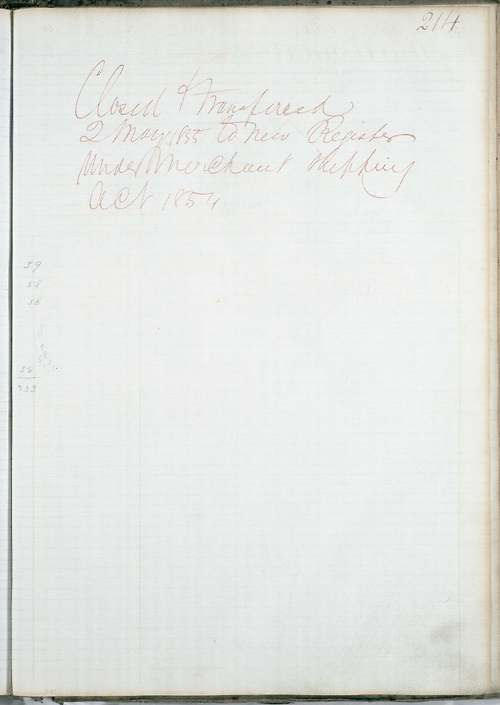 214
Closed & Transfered
2 May 1855 to new Register
under Merchant Shipping
Act 1854
59
58
56